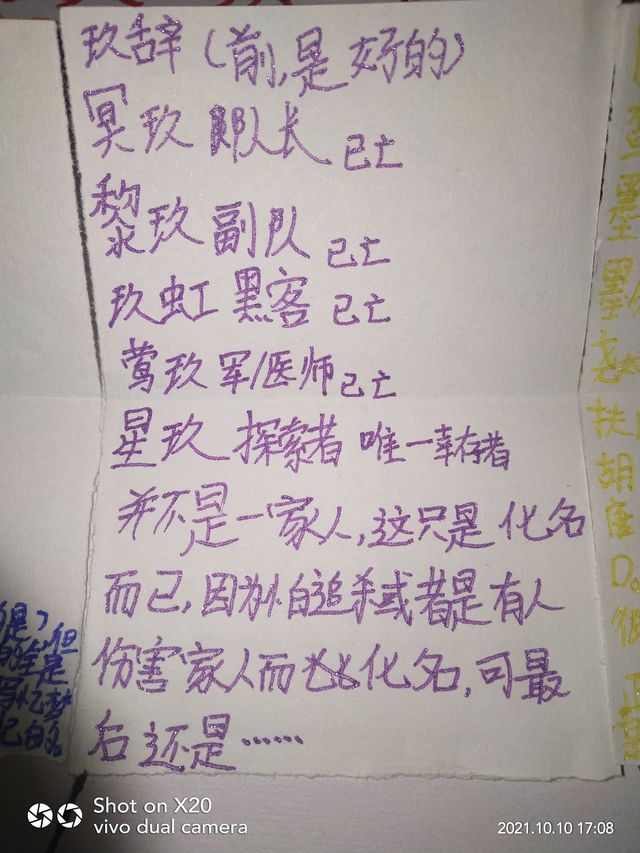 玖辞（前，是好的）
冥玖 队长 已亡
黎玖 副队 已亡
玖虹 黑客 已亡
莺玖 军/医师 已亡
星玖 探索者 唯一幸存者
并不是一家人，这只是化名
而已，因为怕追杀或者是有人
伤害家人而化名，可最
后还是……
是，但
是
梦
扶
胡
Shot on X20
vivo dual camera
2021.10.10 17:08